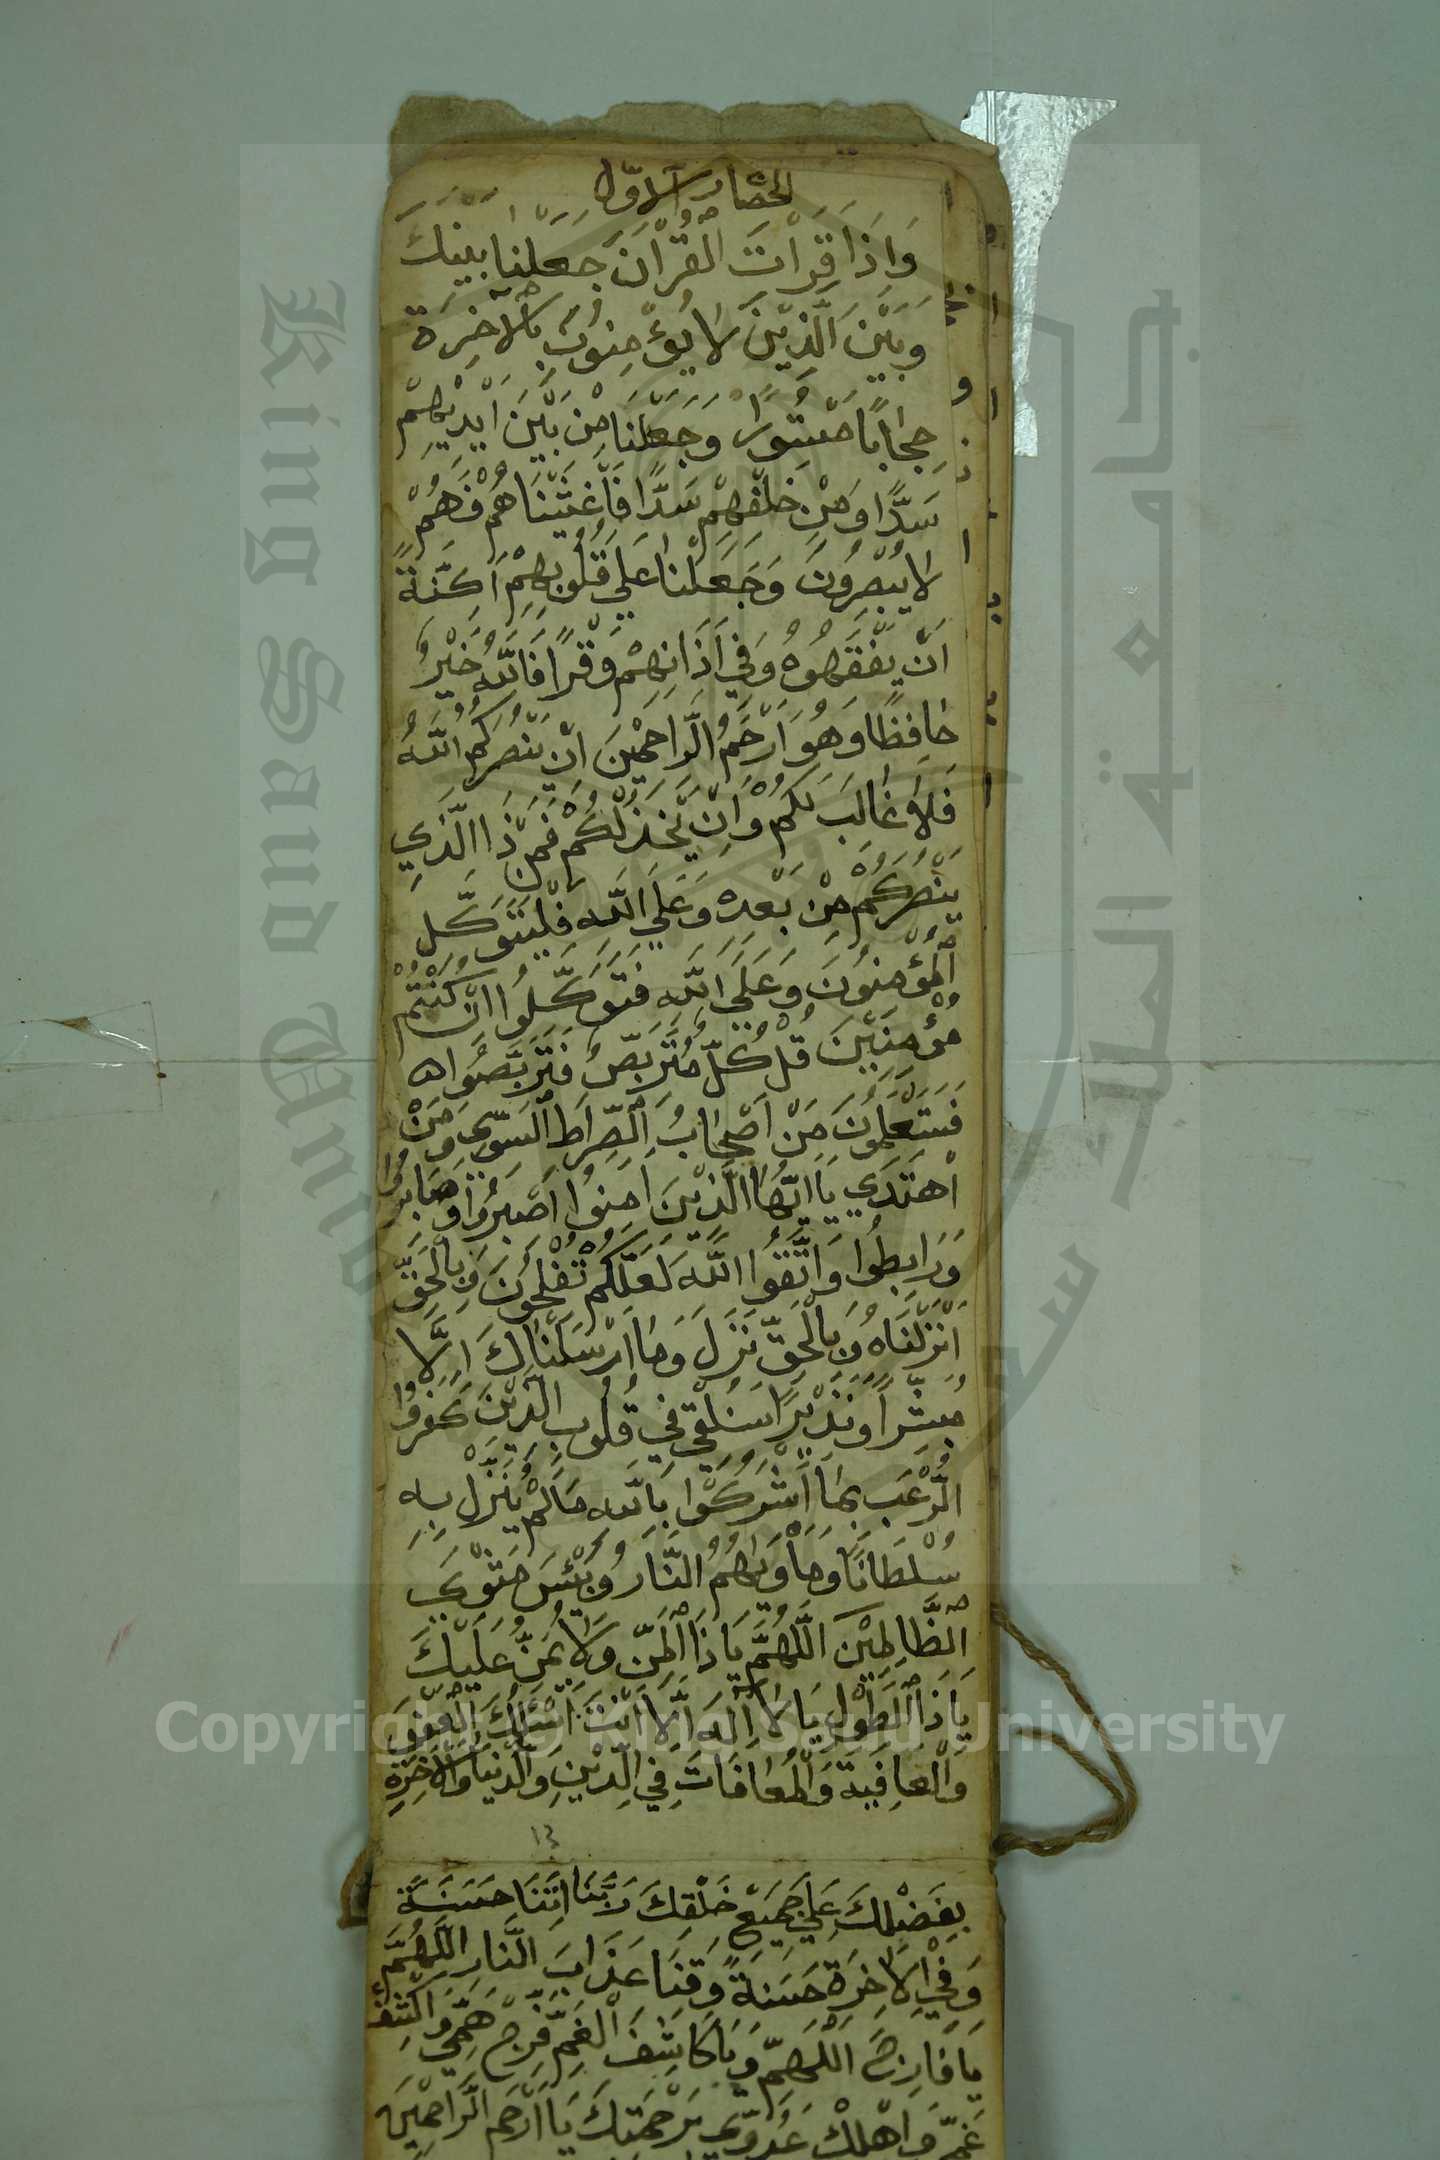 الحصار الاول
وَاِذَا قَرَاْتَ الْقُرْاٰنَ جَعَلْنَا بَيْنَكَ
وَبَيْنَ الَّذِيْنَ لَا يُؤْمِنُوْنَ بِالْاٰخِرَةِ
حِجَابًا مَسْتُوْرًا وَجَعَلْنَا مِنْ بَيْنِ اَيْدِيْهِمْ
سَدًّا وَمِنْ خَلْفِهِمْ سَدًّا فَاَغْشَيْنَاهُمْ فَهُمْ
لَا يُبْصِرُوْنَ وَجَعَلْنَا عَلٰي قُلُوْبِهِمْ اَكِنَّةً
اَنْ يَفْقَهُوْهُ وَفِي اٰذَانِهِمْ وَقْرًا فَاللّٰهُ خَيْرٌ
حَافِظًا وَهُوَ اَرْحَمُ الرَّاحِمِيْنَ اِنْ يَنْصُرْكُمُ اللّٰهُ
فَلَا غَالِبَ لَكُمْ وَاِنْ يَخْذُلْكُمْ فَمَنْ ذَا الَّذِي
يَنْصُرُكُمْ مِنْ بَعْدِهِ وَعَلَي اللّٰهِ فَلْيَتَوَكَّلِ
الْمُؤْمِنُوْنَ وَعَلَي اللّٰهِ فَتَوَكَّلُوْا اِنْ كُنْتُمْ
مُؤْمِنِيْنَ قُلْ كُلٌّ مُتَرَبِّصٌ فَتَرَبَّصُوْا
فَسَتَعْلَمُوْنَ مَنْ اَصْحَابُ الصِّرَاطِ السَّوِيِّ وَمَنْ
اهْتَدَي يَا اَيُّهَا الَّذِيْنَ اٰمَنُوا اصْبِرُوْا وَصَابِرُوْا
وَرَابِطُوْا وَاتَّقُوا اللّٰهَ لَعَلَّكُمْ تُفْلِحُوْنَ وَبِالْحَقِّ
اَنْزَلْنَاهُ وَبِالْحَقِّ نَزَلَ وَمَا اَرْسَلْنَاكَ اِلَّا
مُبَشِّرًا وَنَذِيْرًا سَنُلْقِي فِي قُلُوْبِ الَّذِيْنَ كَفَرُوا
الرُّعْبَ بِمَا اَشْرَكُوْا بِاللّٰهِ مَا لَمْ يُنَزِّلْ بِهِ
سُلْطَانًا وَمَاْوٰيهُمُ النَّارُ وَبِئْسَ مَثْوَي
الظَّالِمِيْنَ اَللّٰهُمَّ يَا ذَا الْمَنِّ وَلَا يُمَنُّ عَلَيْكَ
يَا ذَا الطَّوْلِ يَا لَا اِلٰهَ اِلَّا اَنْتَ اَسْئَلُكَ الْعَفْوَ
وَالْعَافِيَةَ وَالْمُعَافَاتَ فِي الدِّيْنِ وَالدُّنْيَا وَالْاٰخِرَةِ
١٣
بِفَضْلِكَ عَلٰي جَمِيْعِ خَلْقِكَ رَبَّنَا اٰتِنَا حَسَنَةً
وَفِي الْاٰخِرَةِ حَسَنَةً وَقِنَا عَذَابَ النَّارِ اَللّٰهُمَّ
يَا فَارِجَ الْهَمِّ وَيَا كَاشِفَ الْغَمِّ فَرِّجْ هَمِّي وَاكْشِفْ
غَمِّي وَاَهْلِكْ عَدُوِّي بِرَحْمَتِكَ يَا اَرْحَمَ الرَّاحِمِيْنَ
King Saud University
جامعة الملك سعود
Copyright © King Saud University